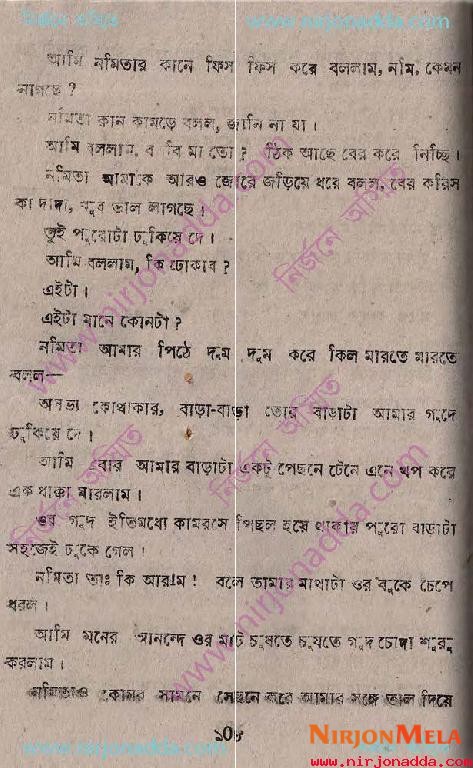 নির্জনে অমিত
www.nirjonadda.com
আমি নমিতার কানে ফিস ফিস করে বললাম, নমি, কেমন
লাগছে ?
নমিতা কান কামড়ে বলল, জানি না যা।
আমি বললাম, ঠিক আছে বের করে নিচ্ছি।
নমিতা আমাকে আরও জোরে জড়িয়ে ধরে বলল, বের করিস
না দাদা, খুব ভাল লাগছে।
তুই পুরোটা ঢুকিয়ে দে।
আমি বললাম, কি ঢোকাব ?
এইটা।
এইটা মানে কোনটা ?
নমিতা আমার পিঠে দুম দুম করে কিল মারতে মারতে
বলল—
অসভ্য কোথাকার, বাড়া-বাড়া তোর বাড়াটা আমার গুদে
ঢুকিয়ে দে।
আমি এবার আমার বাড়াটা একটু পেছনে টেনে এনে থপ করে
এক ধাক্কা মারলাম।
ওর গুদ ইতিমধ্যে কামরসে পিছল হয়ে থাকার পুরো বাড়াটা
সহজেই ঢুকে গেল।
নমিতা আঃ কি আরাম ! বলে আমার মাথাটা ওর বুকে চেপে
ধরল।
আমি মনের আনন্দে ওর মাই চুষতে চুষতে গুদ চোদা শুরু
করলাম।
নমিতাও কোমর সামনে পেছনে করে আমার সঙ্গে তাল দিয়ে
www.nirjonadda.com
NIRJONMELA
www.nirjonadda.com